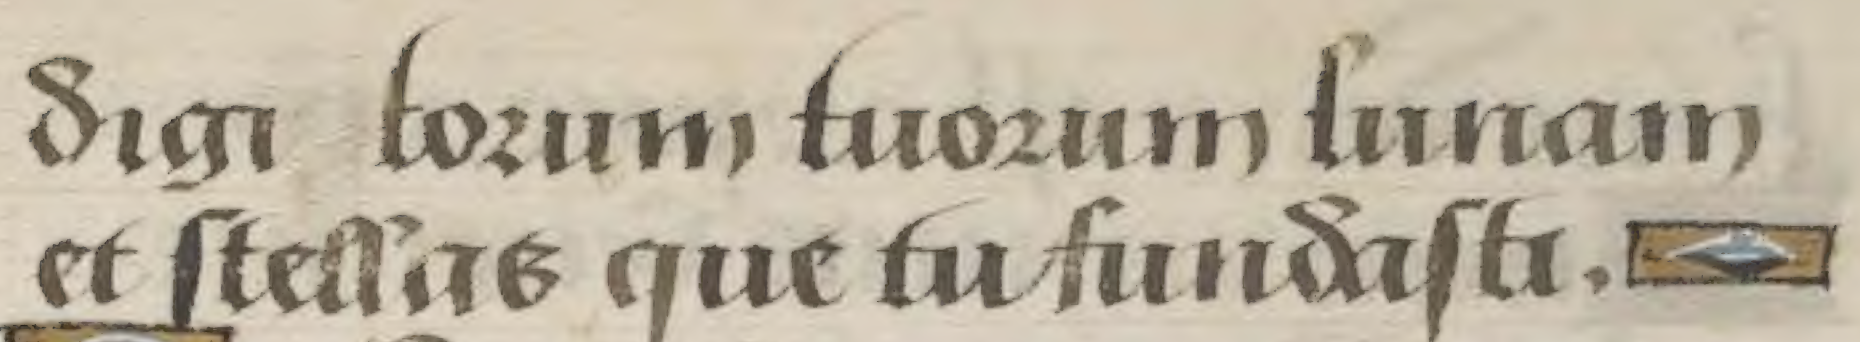 digi torum tuorum lunam
et stellas que tu fundasti.